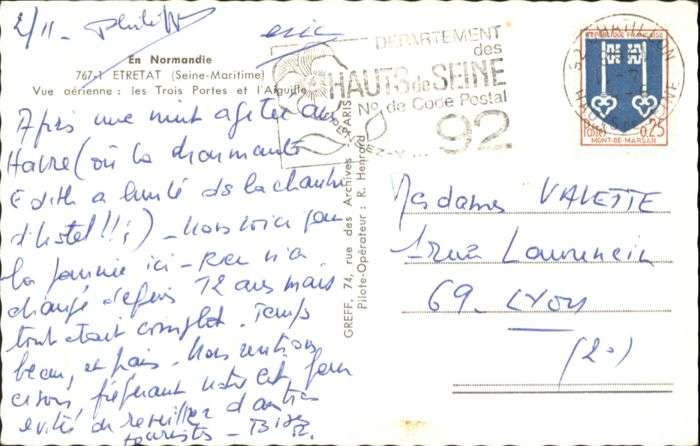 2/11 - Philipp
eric
En Normandie
767-1 ETRETAT (Seine-Maritime)
Vue aérienne : les Trois Portes et l'Aiguille
Après une nuit agitée au
Havre (où la dormante
Edith a hurlé de la chambre
d'hotel !!;) - nous voici pour
la journée ici - Rien n'a
changé depuis 12 ans mais
tout était complet. Temps
beau, et frais. Nous rentrons
ce soir, préférant notre lit pour
éviter de réveiller d'autres
touristes - Bises
GREFF, 74, rue des Archives - PARIS
Pilote-Opérateur : R. Henrard
DEPARTEMENT
des
HAUTS de SEINE
No de Code Postal
92
REPUBLIQUE FRANÇAISE
Postes 0,25
MONT-DE-MARSAN
Madame VALETTE
1 rue Laurencin
69. LYON
(2e)